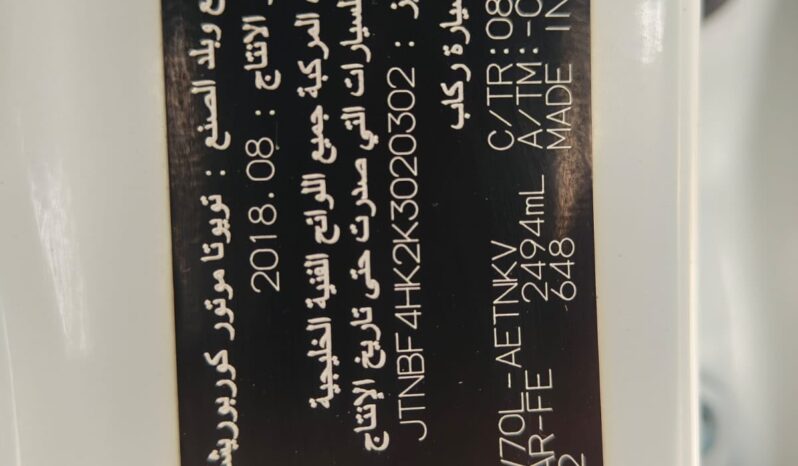 ع وبلد الصنع : تويوتا موتور كوربوريش
ر الانتاج : 2018.08
المركبة جميع اللوائح الفنية الخليجية
لسيارات التي صدرت حتى تاريخ الانتاج
ز : JTNBF4HK2K3020302
سيارة ركاب
V70L-AETNKV C/TR:08
AR-FE 2494mL A/TM:-0
2 648 MADE IN